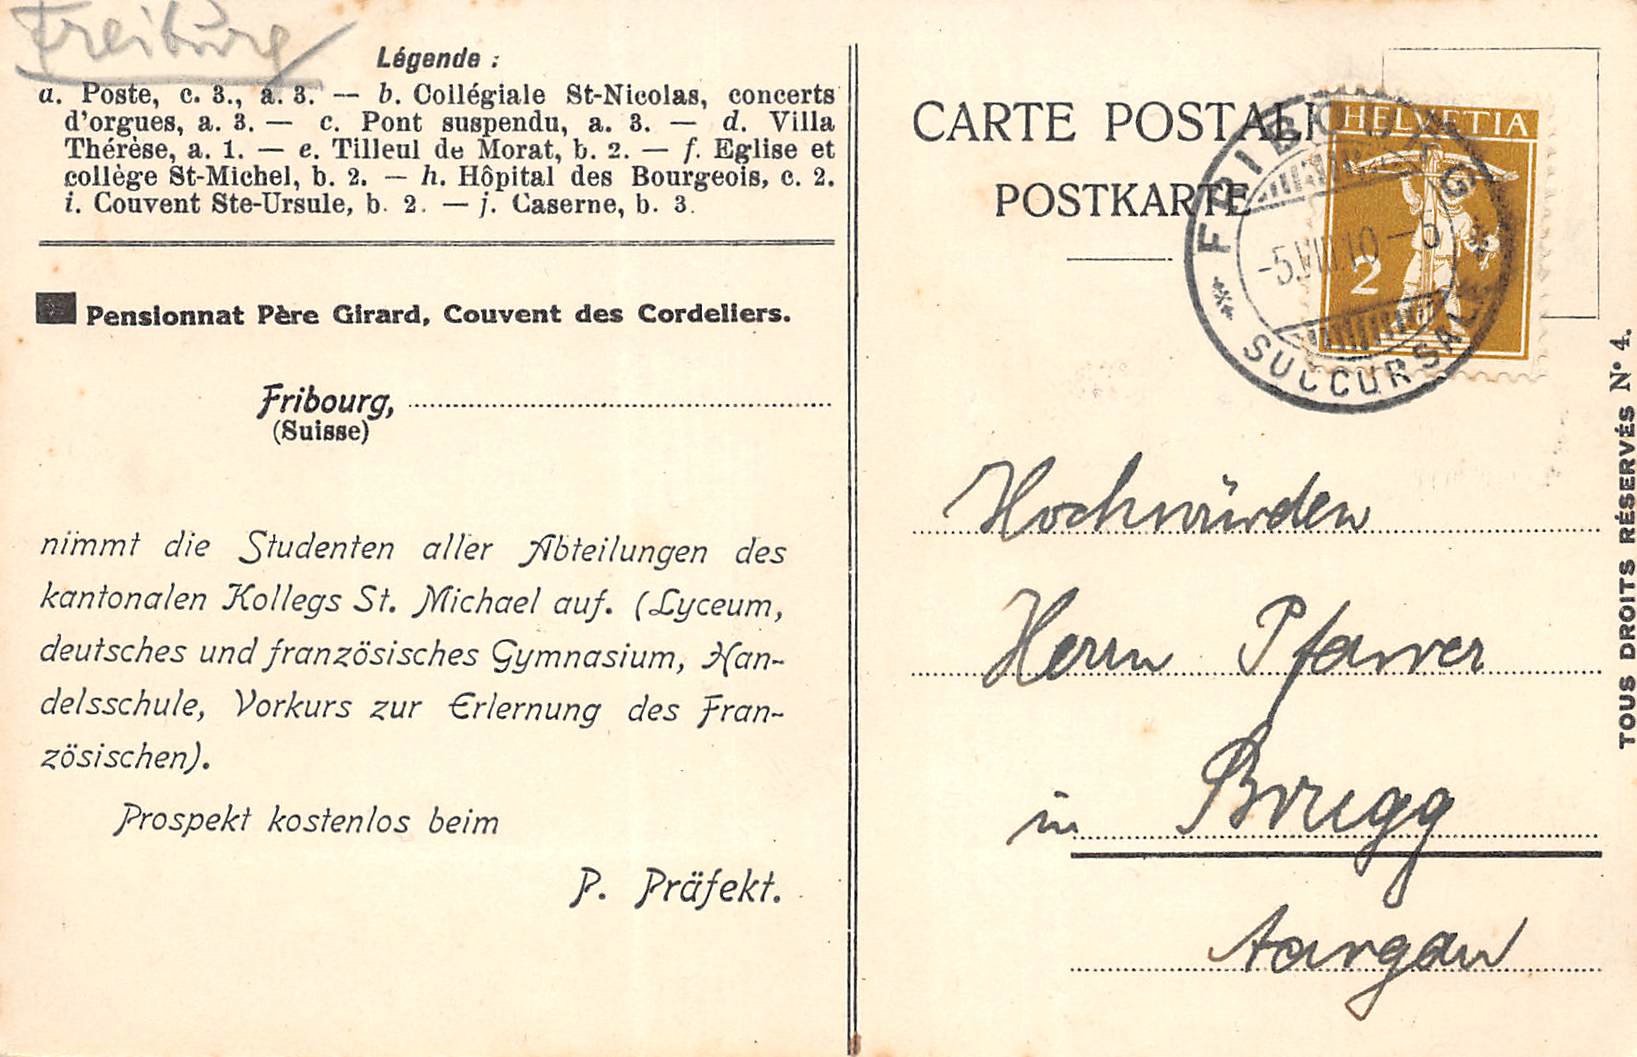 Freiburg
Légende :
a. Poste, c. 3., a. 3. — b. Collégiale St-Nicolas, concerts
d'orgues, a. 3. — c. Pont suspendu, a. 3. — d. Villa
Thérèse, a. 1. — e. Tilleul de Morat, b. 2. — f. Eglise et
collège St-Michel, b. 2. — h. Hôpital des Bourgeois, c. 2.
i. Couvent Ste-Ursule, b. 2. — j. Caserne, b. 3.
Pensionnat Père Girard, Couvent des Cordeliers.
Fribourg,
(Suisse)
nimmt die Studenten aller Abteilungen des
kantonalen Kollegs St. Michael auf. (Lyceum,
deutsches und französisches Gymnasium, Han-
delsschule, Vorkurs zur Erlernung des Fran-
zösischen).
Prospekt kostenlos beim
P. Präfekt.
CARTE POSTALE
POSTKARTE
HELVETIA
2
FRIBOURG
-5.VIII.10
SUCCURSALE
Hochwürden
Herrn Pfarrer
in Brugg
Aargau
TOUS DROITS RÉSERVÉS N° 4.